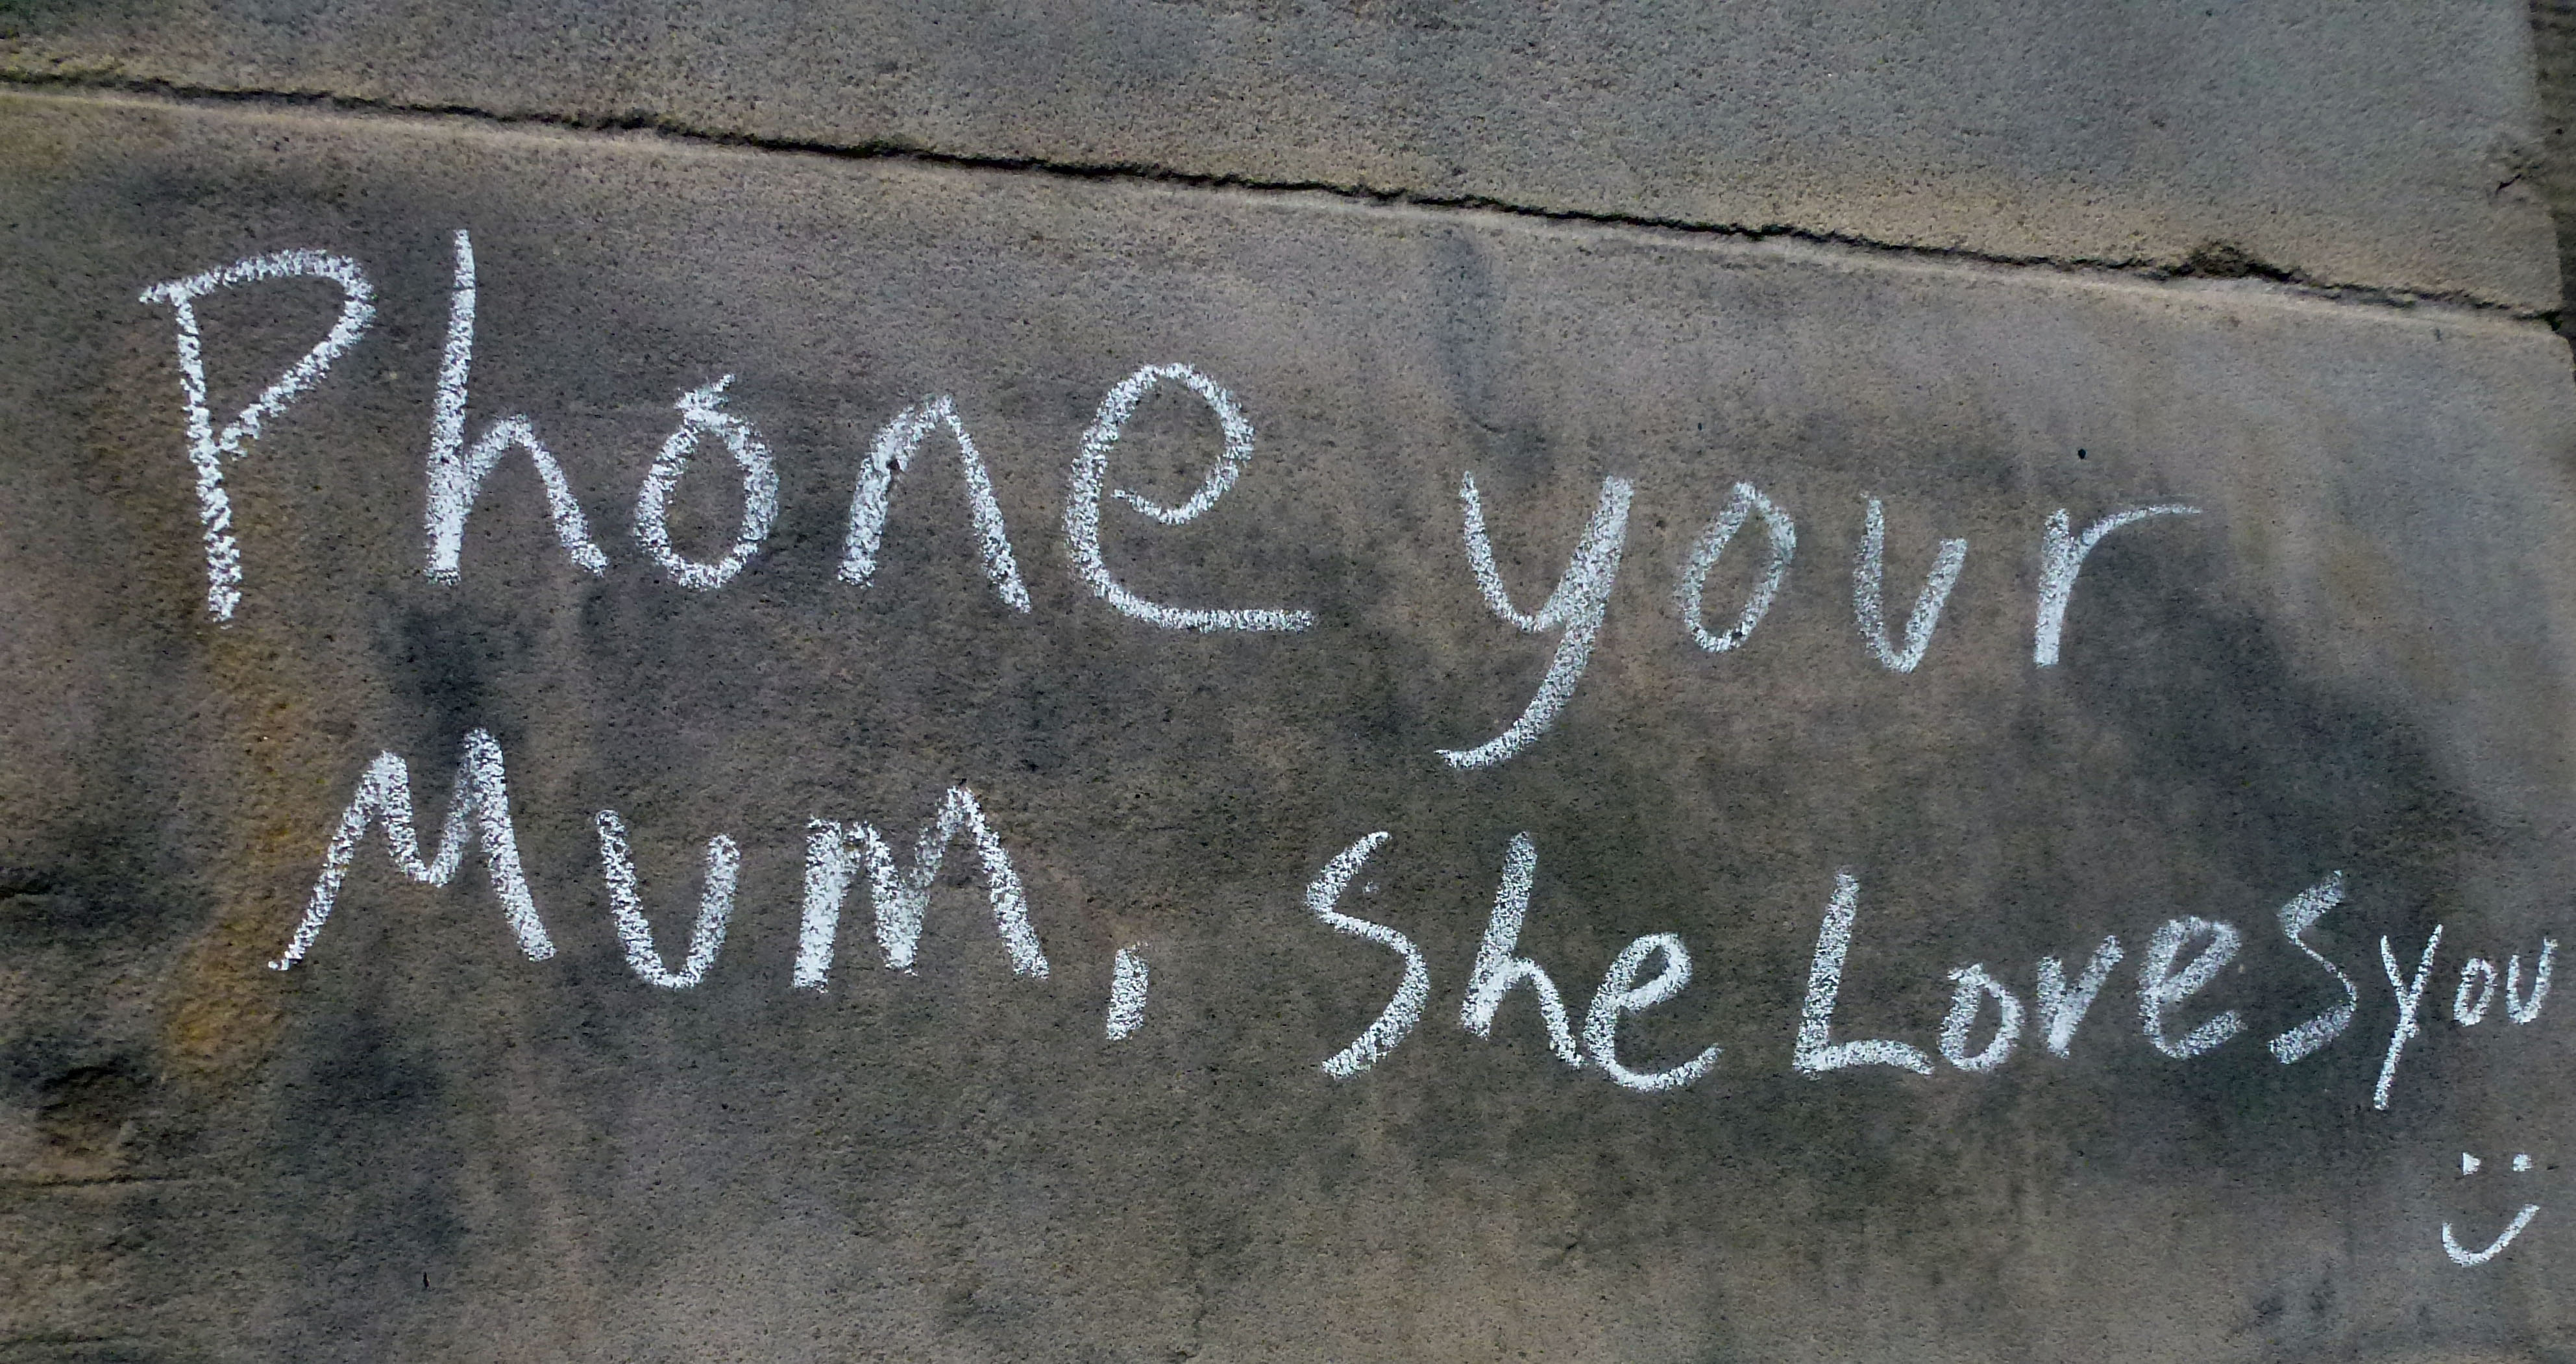 Phone your
Mum, She Loves you
:)